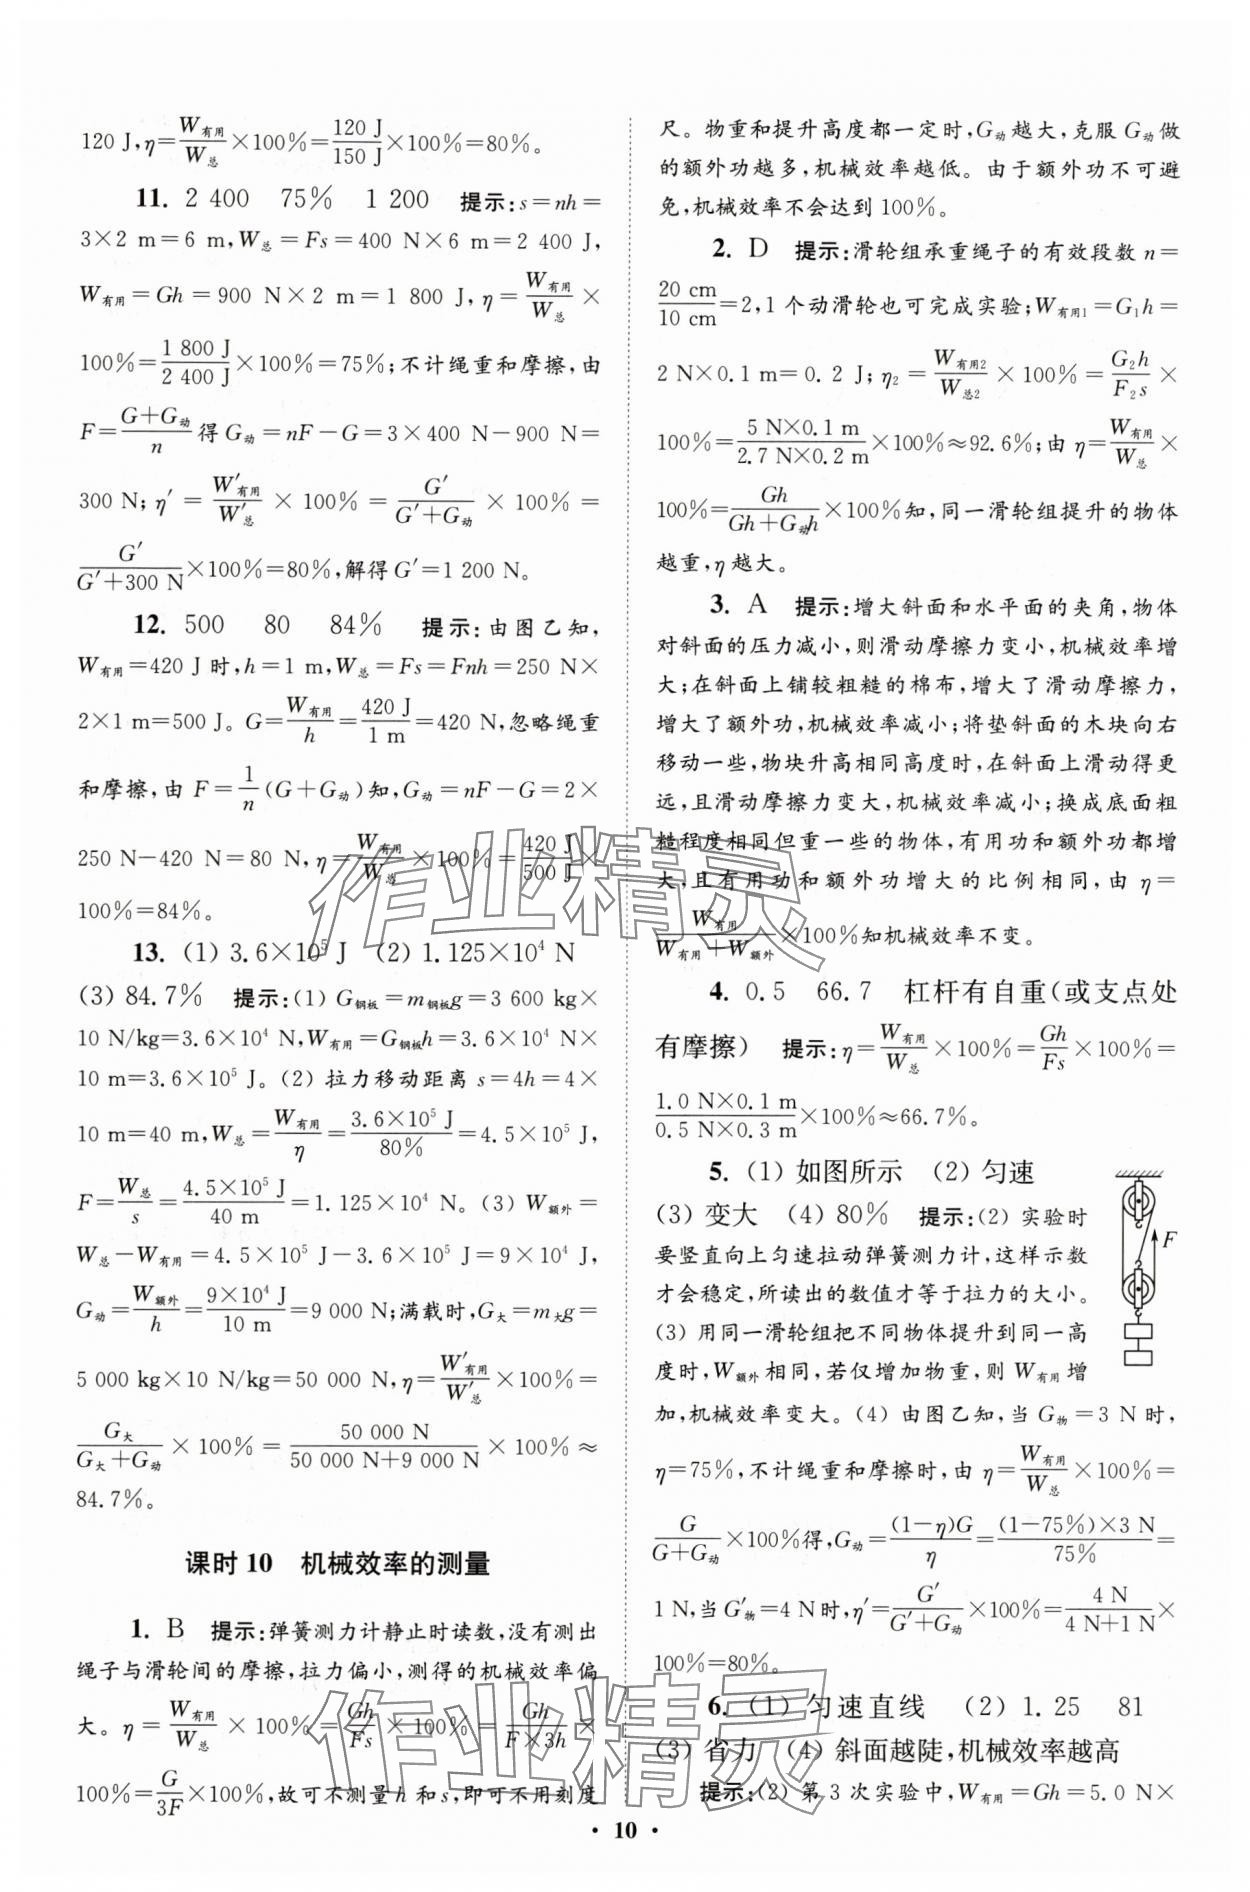 120 J,η=W有用/W总×100%=120 J/150 J×100%=80%。
11. 2 400　75%　1 200　提示:s=nh=
3×2 m=6 m,W总=Fs=400 N×6 m=2 400 J,
W有用=Gh=900 N×2 m=1 800 J,η=W有用/W总×
100%=1 800 J/2 400 J×100%=75%;不计绳重和摩擦,由
F=(G+G动)/n得G动=nF-G=3×400 N-900 N=
300 N;η′=W′有用/W′总×100%=G′/(G′+G动)×100%=
G′/(G′+300 N)×100%=80%,解得G′=1 200 N。
12. 500　80　84%　提示:由图乙知,
W有用=420 J时,h=1 m,W总=Fs=Fnh=250 N×
2×1 m=500 J。G=W有用/h=420 J/1 m=420 N,忽略绳重
和摩擦,由F=1/n(G+G动)知,G动=nF-G=2×
250 N-420 N=80 N,η=W有用/W总×100%=420 J/500 J×
100%=84%。
13. (1) 3.6×10⁵ J　(2) 1.125×10⁴ N
(3) 84.7%　提示:(1) G钢板=m钢板g=3 600 kg×
10 N/kg=3.6×10⁴ N,W有用=G钢板h=3.6×10⁴ N×
10 m=3.6×10⁵ J。(2) 拉力移动距离s=4h=4×
10 m=40 m,W总=W有用/η=3.6×10⁵ J/80%=4.5×10⁵ J,
F=W总/s=4.5×10⁵ J/40 m=1.125×10⁴ N。(3) W额外=
W总-W有用=4.5×10⁵ J-3.6×10⁵ J=9×10⁴ J,
G动=W额外/h=9×10⁴ J/10 m=9 000 N;满载时,G大=m大g=
5 000 kg×10 N/kg=50 000 N,η=W′有用/W′总×100%=
G大/(G大+G动)×100%=50 000 N/(50 000 N+9 000 N)×100%≈
84.7%。
课时10　机械效率的测量
1. B　提示:弹簧测力计静止时读数,没有测出
绳子与滑轮间的摩擦,拉力偏小,测得的机械效率偏
大。η=W有用/W总×100%=Gh/Fs×100%=Gh/(F×3h)×
100%=G/3F×100%,故可不测量h和s,即可不用刻度
尺。物重和提升高度都一定时,G动越大,克服G动做
的额外功越多,机械效率越低。由于额外功不可避
免,机械效率不会达到100%。
2. D　提示:滑轮组承重绳子的有效段数n=
20 cm/10 cm=2,1个动滑轮也可完成实验;W有用1=G₁h=
2 N×0.1 m=0.2 J;η₂=W有用2/W总2×100%=G₂h/F₂s×
100%=(5 N×0.1 m)/(2.7 N×0.2 m)×100%≈92.6%;由η=W有用/W总×
100%=Gh/(Gh+G动h)×100%知,同一滑轮组提升的物体
越重,η越大。
3. A　提示:增大斜面和水平面的夹角,物体
对斜面的压力减小,则滑动摩擦力变小,机械效率增
大;在斜面上铺较粗糙的棉布,增大了滑动摩擦力,
增大了额外功,机械效率减小;将垫斜面的木块向右
移动一些,物块升高相同高度时,在斜面上滑动得更
远,且滑动摩擦力变大,机械效率减小;换成底面粗
糙程度相同但重一些的物体,有用功和额外功都增
大,且有用功和额外功增大的比例相同,由η=
W有用/(W有用+W额外)×100%知机械效率不变。
4. 0.5　66.7　杠杆有自重(或支点处
有摩擦)　提示:η=W有用/W总×100%=Gh/Fs×100%=
(1.0 N×0.1 m)/(0.5 N×0.3 m)×100%≈66.7%。
5. (1) 如图所示　(2) 匀速
(3) 变大　(4) 80%　提示:(2) 实验时
要竖直向上匀速拉动弹簧测力计,这样示数
才会稳定,所读出的数值才等于拉力的大小。
(3) 用同一滑轮组把不同物体提升到同一高
度时,W额外相同,若仅增加物重,则W有用增
加,机械效率变大。(4) 由图乙知,当G物=3 N时,
η=75%,不计绳重和摩擦时,由η=W有用/W总×100%=
G/(G+G动)×100%得,G动=(1-η)G/η=(1-75%)×3 N/75%=
1 N,当G′物=4 N时,η′=G′/(G′+G动)×100%=4 N/(4 N+1 N)×
100%=80%。
6. (1) 匀速直线　(2) 1.25　81
(3) 省力　(4) 斜面越陡,机械效率越高
提示:(2) 第3次实验中,W有用=Gh=5.0 N×
F
作业精灵
作业精灵
• 10 •